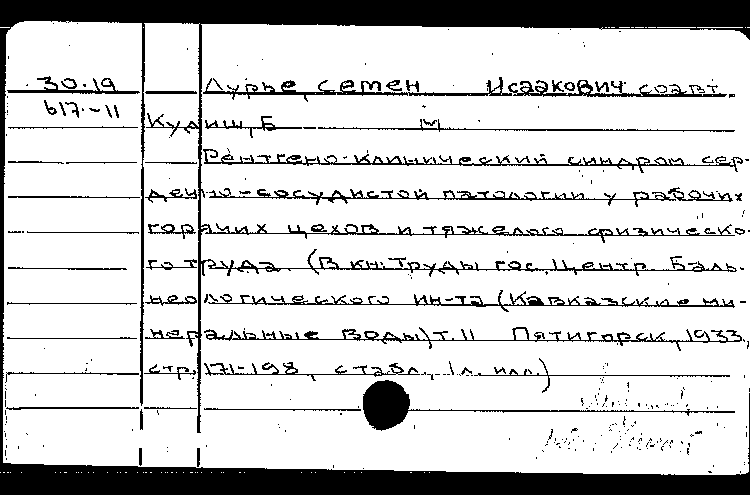 30.19 Лурье, Семен Исаакович соавт.
617.-11
Кудиш, Б
Рентгено-клинический синдром сер-
дечно-сосудистой патологии у рабочих
горячих цехов и тяжелого физическо-
го труда. (В кн: Труды гос. Центр. Баль-
неологического ин-та (Кавказские ми-
неральные Воды) т. II Пятигорск, 1933,
стр. 171-198, с табл., 1 л. илл.)